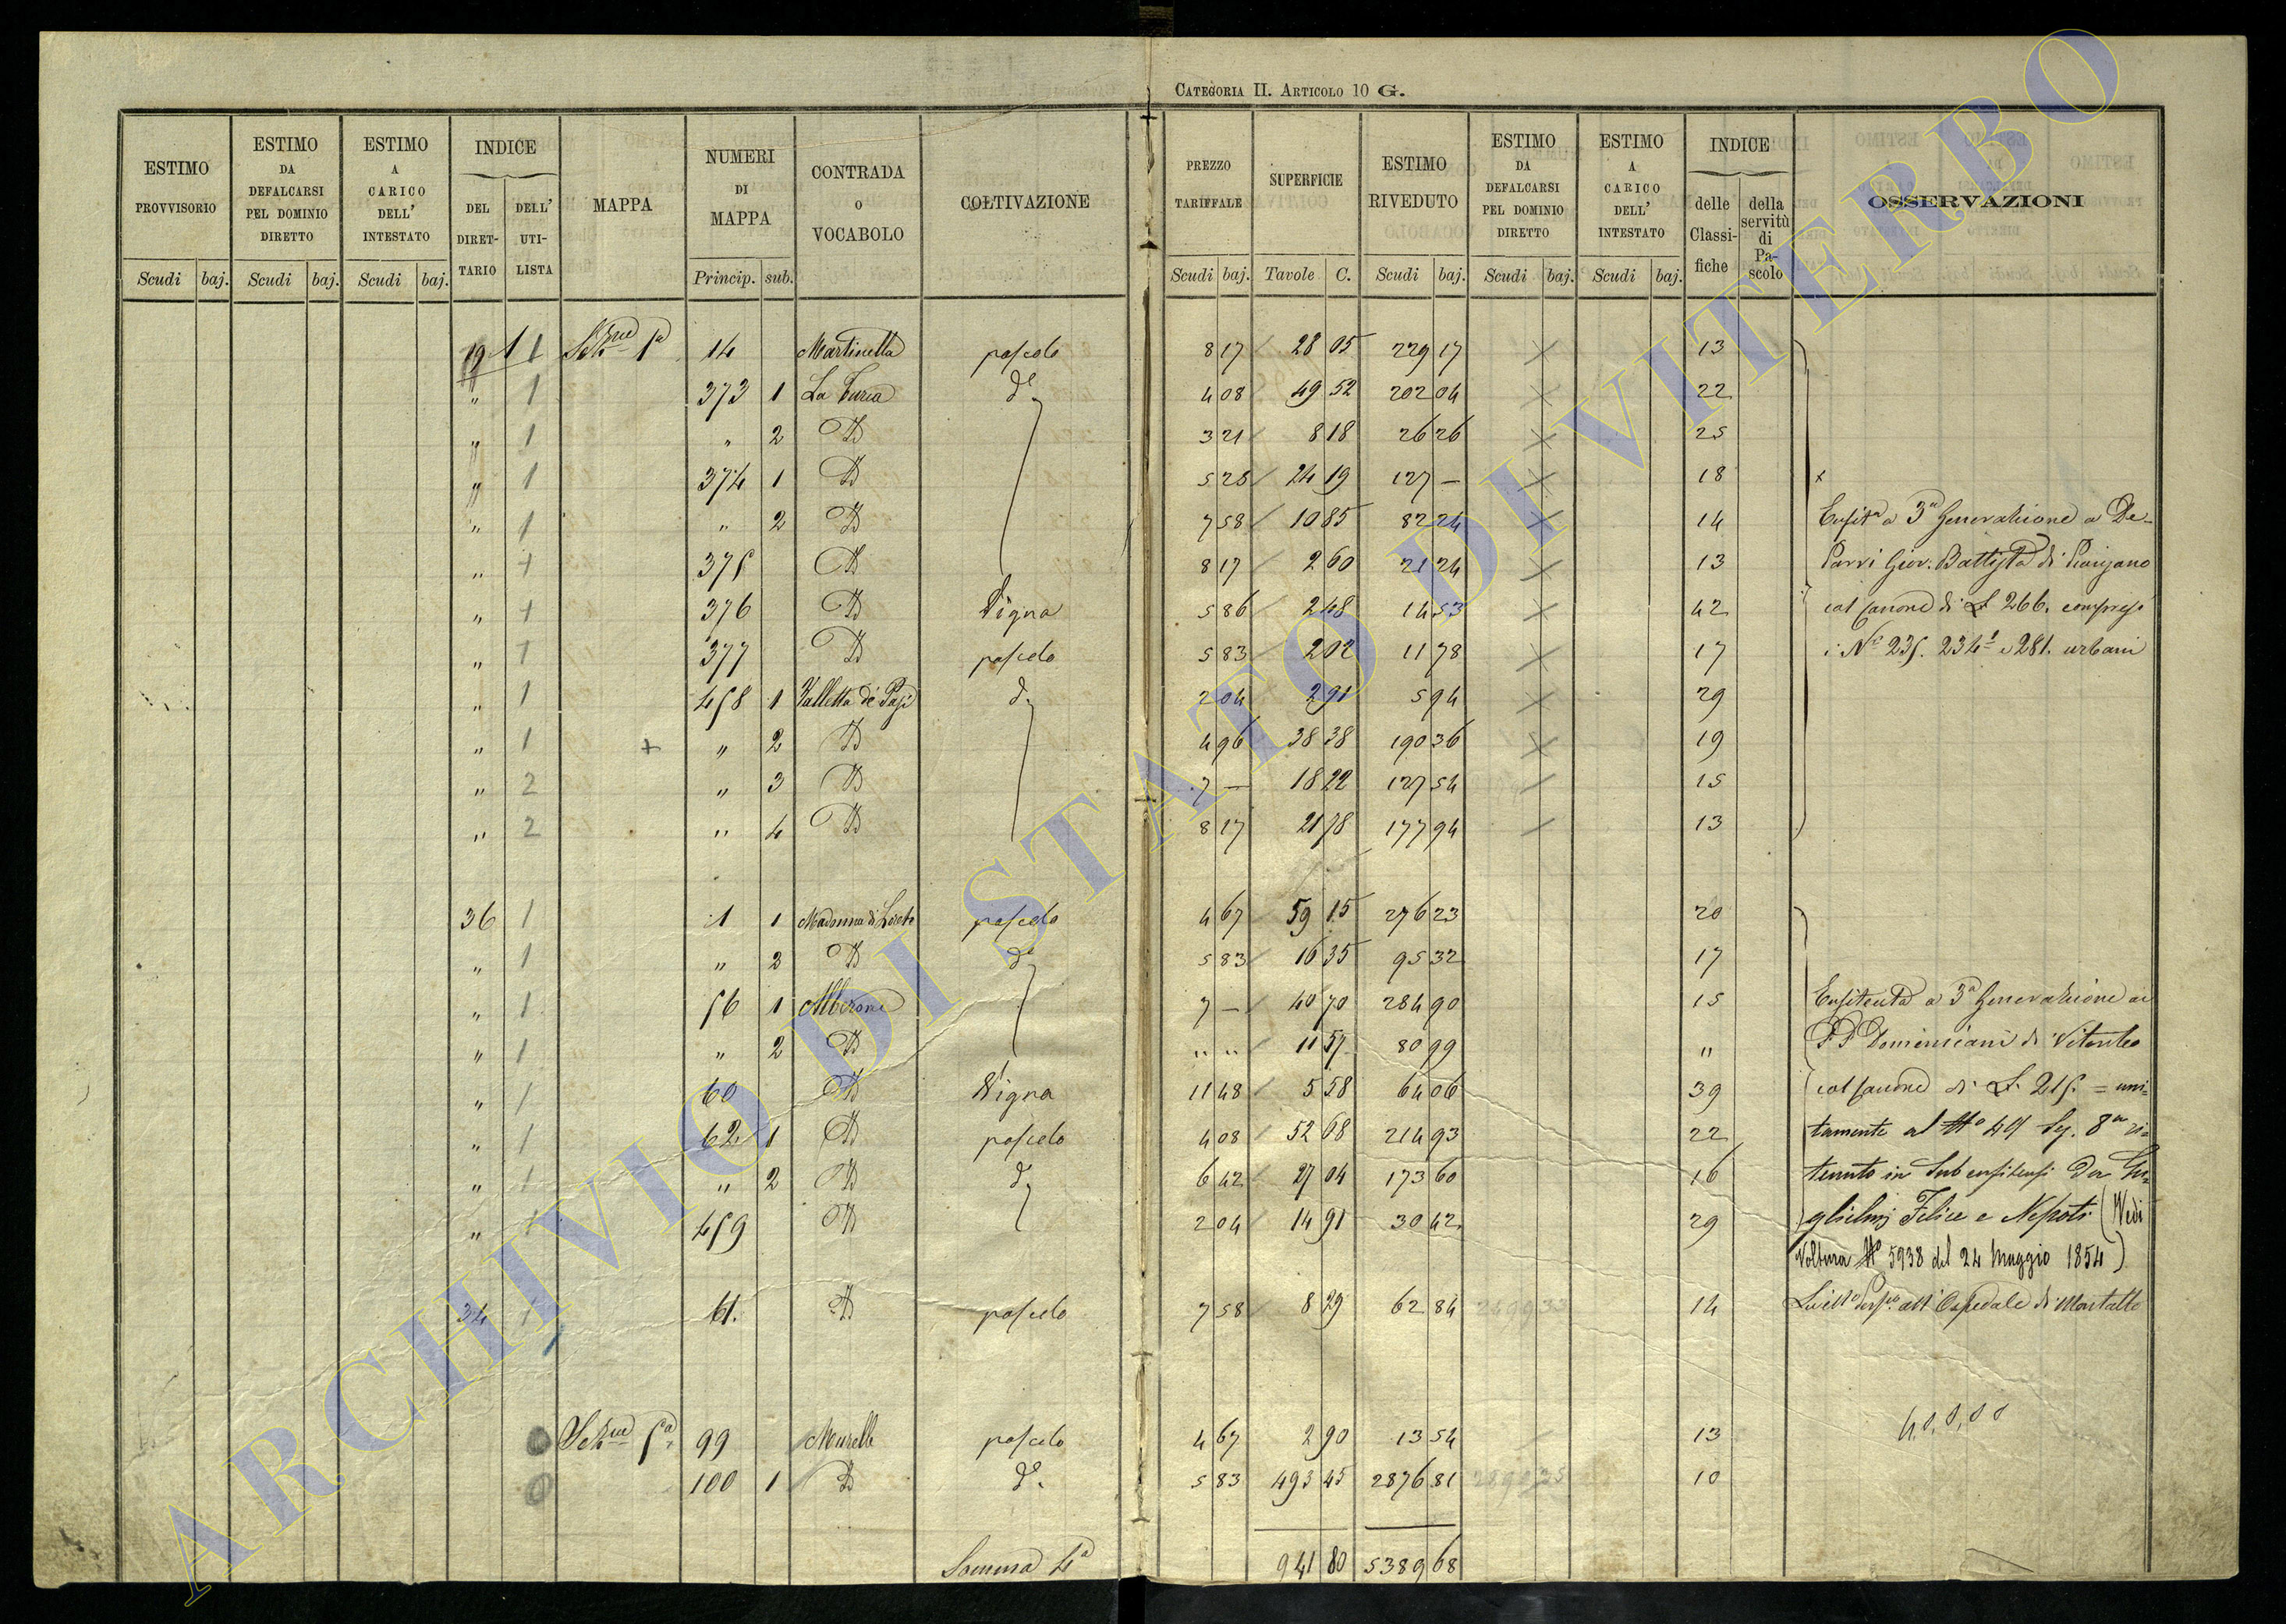 CATEGORIA II. ARTICOLO 10 G.
ESTIMO PROVVISORIO | ESTIMO DA DEFALCARSI PEL DOMINIO DIRETTO | ESTIMO A CARICO DELL' INTESTATO | INDICE DEL DIRETTARIO | DELL' UTILISTA | MAPPA | NUMERI DI MAPPA | CONTRADA O VOCABOLO | COLTIVAZIONE | PREZZO TARIFFALE | SUPERFICIE | ESTIMO RIVEDUTO | ESTIMO DA DEFALCARSI PEL DOMINIO DIRETTO | ESTIMO A CARICO DELL' INTESTATO | INDICE delle Classifiche | della servitù di Pascolo | OSSERVAZIONI
Scudi baj. | Scudi baj. | Scudi baj. | Princip. sub. | Scudi baj. | Tavole C. | Scudi baj. | Scudi baj. | Scudi baj.
19 1 1 14 Martinella pascolo 8 17 28 05 229 17 13
" 1 373 1 La Turia do 4 08 49 52 202 04 22
" 1 " 2 Do 3 21 8 18 26 26 25
" 1 374 1 Do 5 25 24 19 127 — 18 x
" 1 " 2 Do 7 58 10 85 82 24 14 Enfita a 3a Generazione a De-
" 1 375 Do 8 17 2 60 21 24 13 Parri Giov. Battista di Pianzano
" 1 376 Do Vigna 5 86 2 48 14 53 42 col canone di 266. compresi
" 1 377 Do pascolo 5 83 2 02 11 78 17 i Ni 235. 234 e 281. urbani
" 1 458 1 Valletta de Pasi do 2 04 2 91 5 94 29
" 1 + " 2 Do 4 96 38 38 190 36 19
" 2 " 3 Do 7 — 18 22 127 54 15
" 2 " 4 Do 8 17 21 78 177 94 13
36 1 1 1 Madonna di Loreto pascolo 4 67 59 15 276 23 20
" 1 " 2 Do do 5 83 16 35 95 32 17
" 1 56 1 Alberone 7 — 40 70 284 90 15 Enfiteuta a 3a Generazione ai
" 1 " 2 Do " " 11 57 80 99 " P P Domenicani di Viterbo
" 1 60 Do Vigna 11 48 5 58 64 06 39 col canone di 215. = uni-
" 1 62 1 Do pascolo 4 08 52 68 214 93 22 tamente al No 49 Sez. 8a ri-
" 1 " 2 Do do 6 42 27 04 173 60 16 tenuto in Subenfiteusi da Gu-
" 1 459 Do 2 04 14 91 30 42 29 glielmi Felice e Nepoti (Vedi
Voltura No 5938 del 24 Maggio 1854)
34 1 61. Do pascolo 7 58 8 29 62 84 14 all'Ospedale di Montalto
0 99 Murelle pascolo 4 67 2 90 13 54 13
0 100 1 Do do 5 83 493 45 2876 81 10
Somma 4a 941 80 5389 68
ARCHIVIO DI STATO DI VITERBO